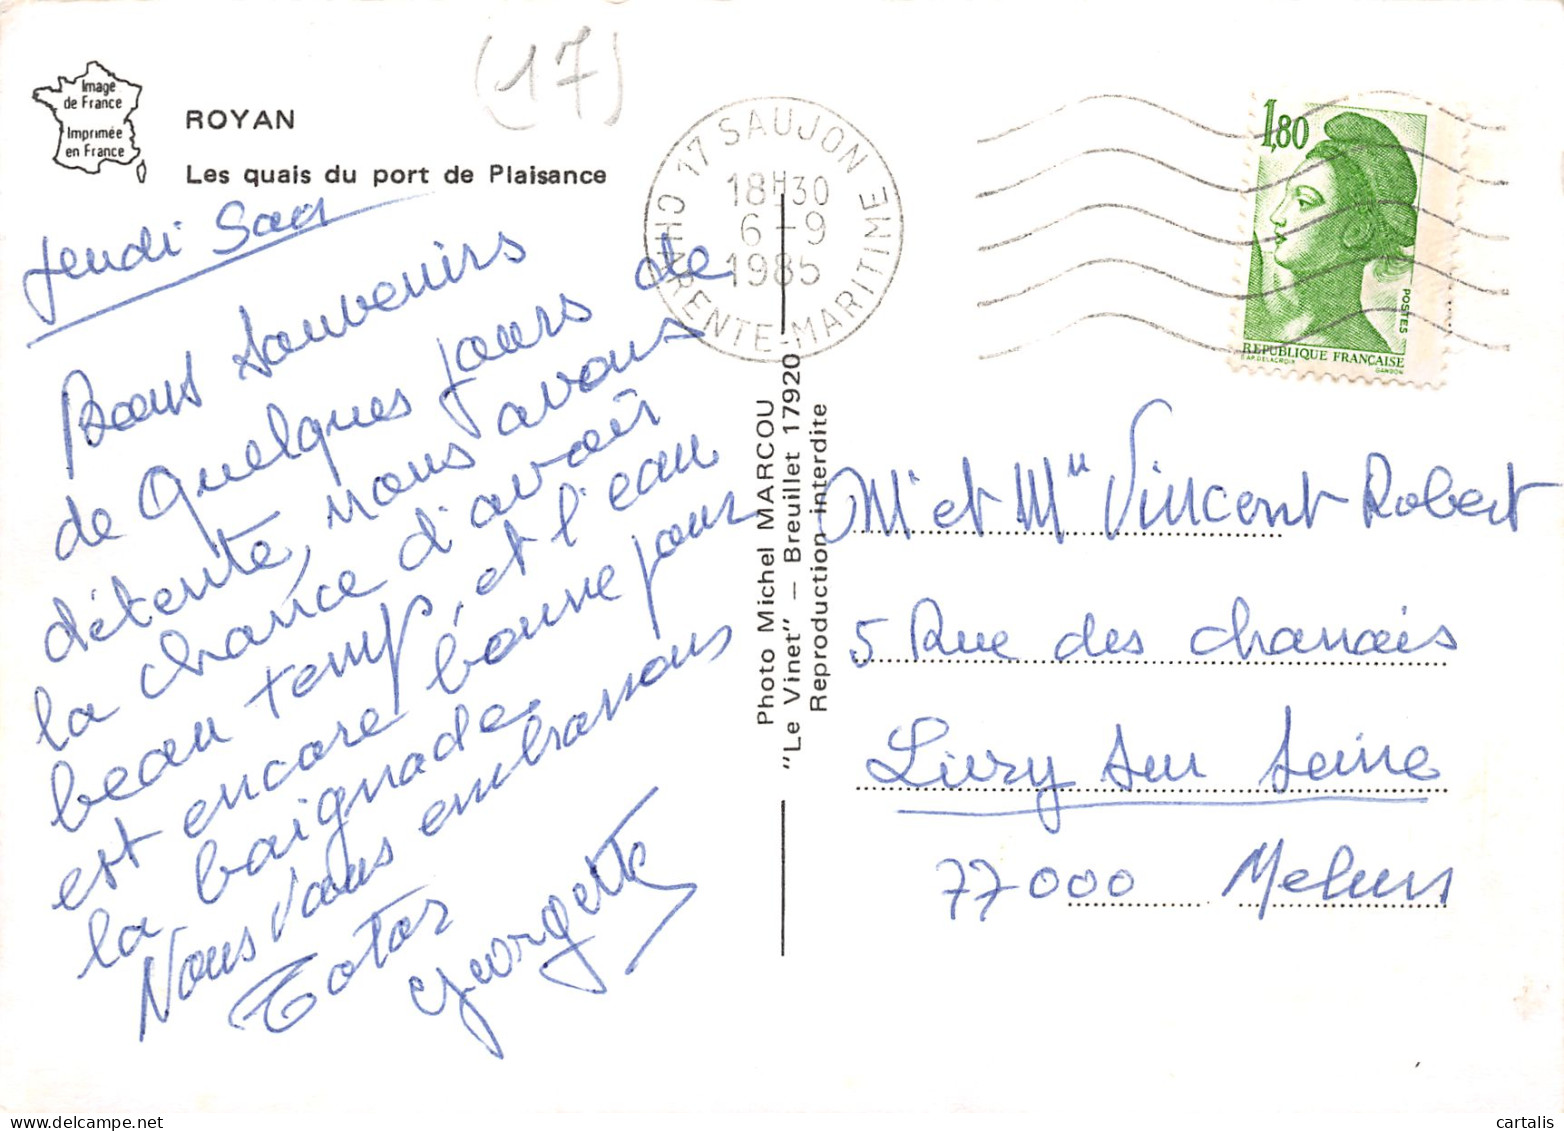 (17)
Image
de France
Imprimée
en France
ROYAN
Les quais du port de Plaisance
17 SAUJON
18H30
6-9
1985
CHARENTE-MARITIME
1,80
POSTES
REPUBLIQUE FRANÇAISE
AP. DELACROIX
GANDON
Jeudi
Bons Souvenirs
de quelques jours de
détente, nous avons
la chance d'avoir
beau temps, et l'eau
est encore bonne pour
la baignade.
Nous vous embrassons
Georgette
Photo Michel MARCOU
"Le Vinet" — Breuillet 17920
Reproduction interdite
Mr et Mme Vincent Robert
5 Rue des
Livry sur Seine
77000 Melun
cartalis